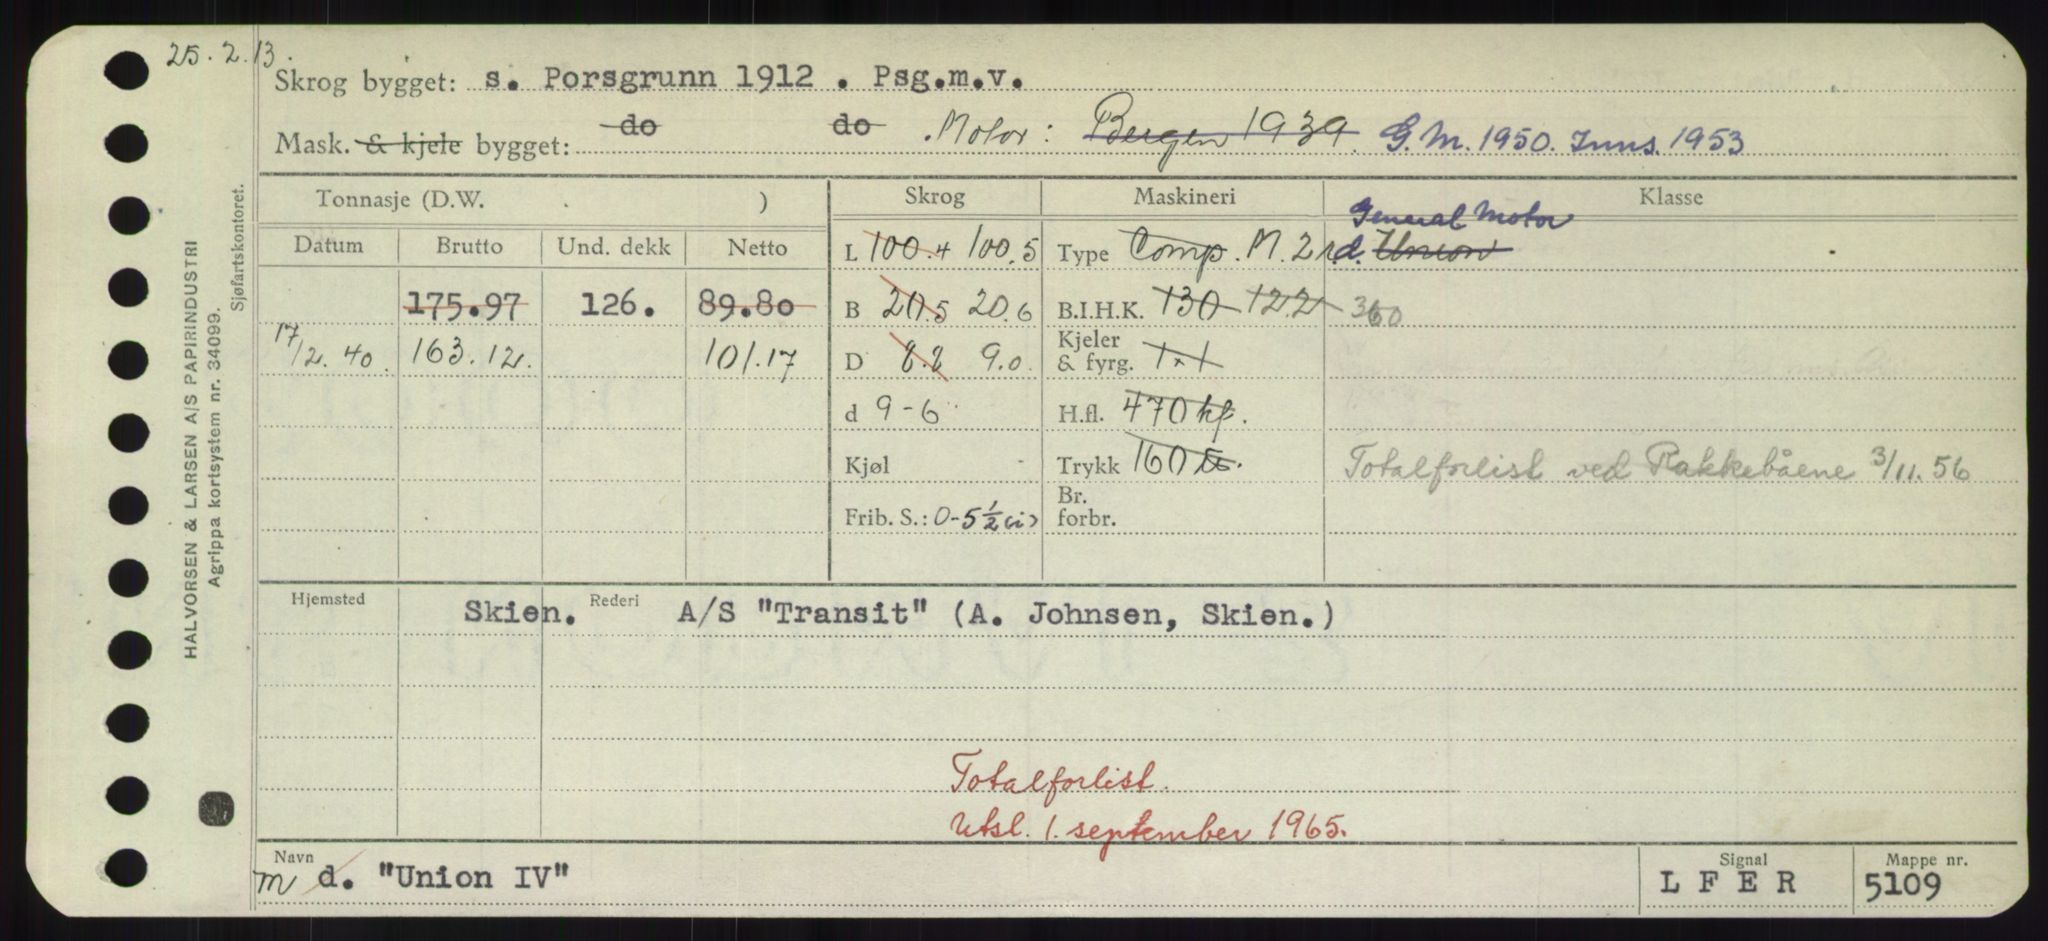 25.2.13.
Skrog bygget: s. Porsgrunn 1912 . Psg.m.v.
Mask. & kjele bygget: do do Motor: Bergen 1939. G.M. 1950. Inns. 1953
Tonnasje (D.W. ) Skrog Maskineri Klasse
General Motor
Datum Brutto Und. dekk Netto L 100.4 100.5 Type Comp. M. 2 t.d. Union
175.97 126. 89.80 B 20.5 20.6 B.I.H.K. 130 122 360
17/12.40. 163.12. 101.17 D 8.8 9.0 Kjeler & fyrg. 1x1
d 9-6 H.fl. 470 kf.
Kjøl - Trykk 160 lb. Totalforlist ved Rakkebåene 3/11.56
Frib. S.: 0-5½(i) Br. forbr.
Hjemsted Skien. Rederi A/S "Transit" (A. Johnsen, Skien.)
Totalforlist.
Utsl. 1. september 1965.
Navn Signal Mappe nr.
m d. "Union IV" L F E R 5109
HALVORSEN & LARSEN A/S PAPIRINDUSTRI
Agrippa kortsystem nr. 34099.
Sjøfartskontoret.